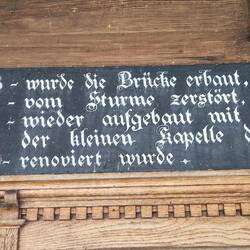 - wurde die Brücke erbaut,
- vom Sturme zerstört,
- wieder aufgebaut mit
der kleinen Kapelle
- renoviert wurde.